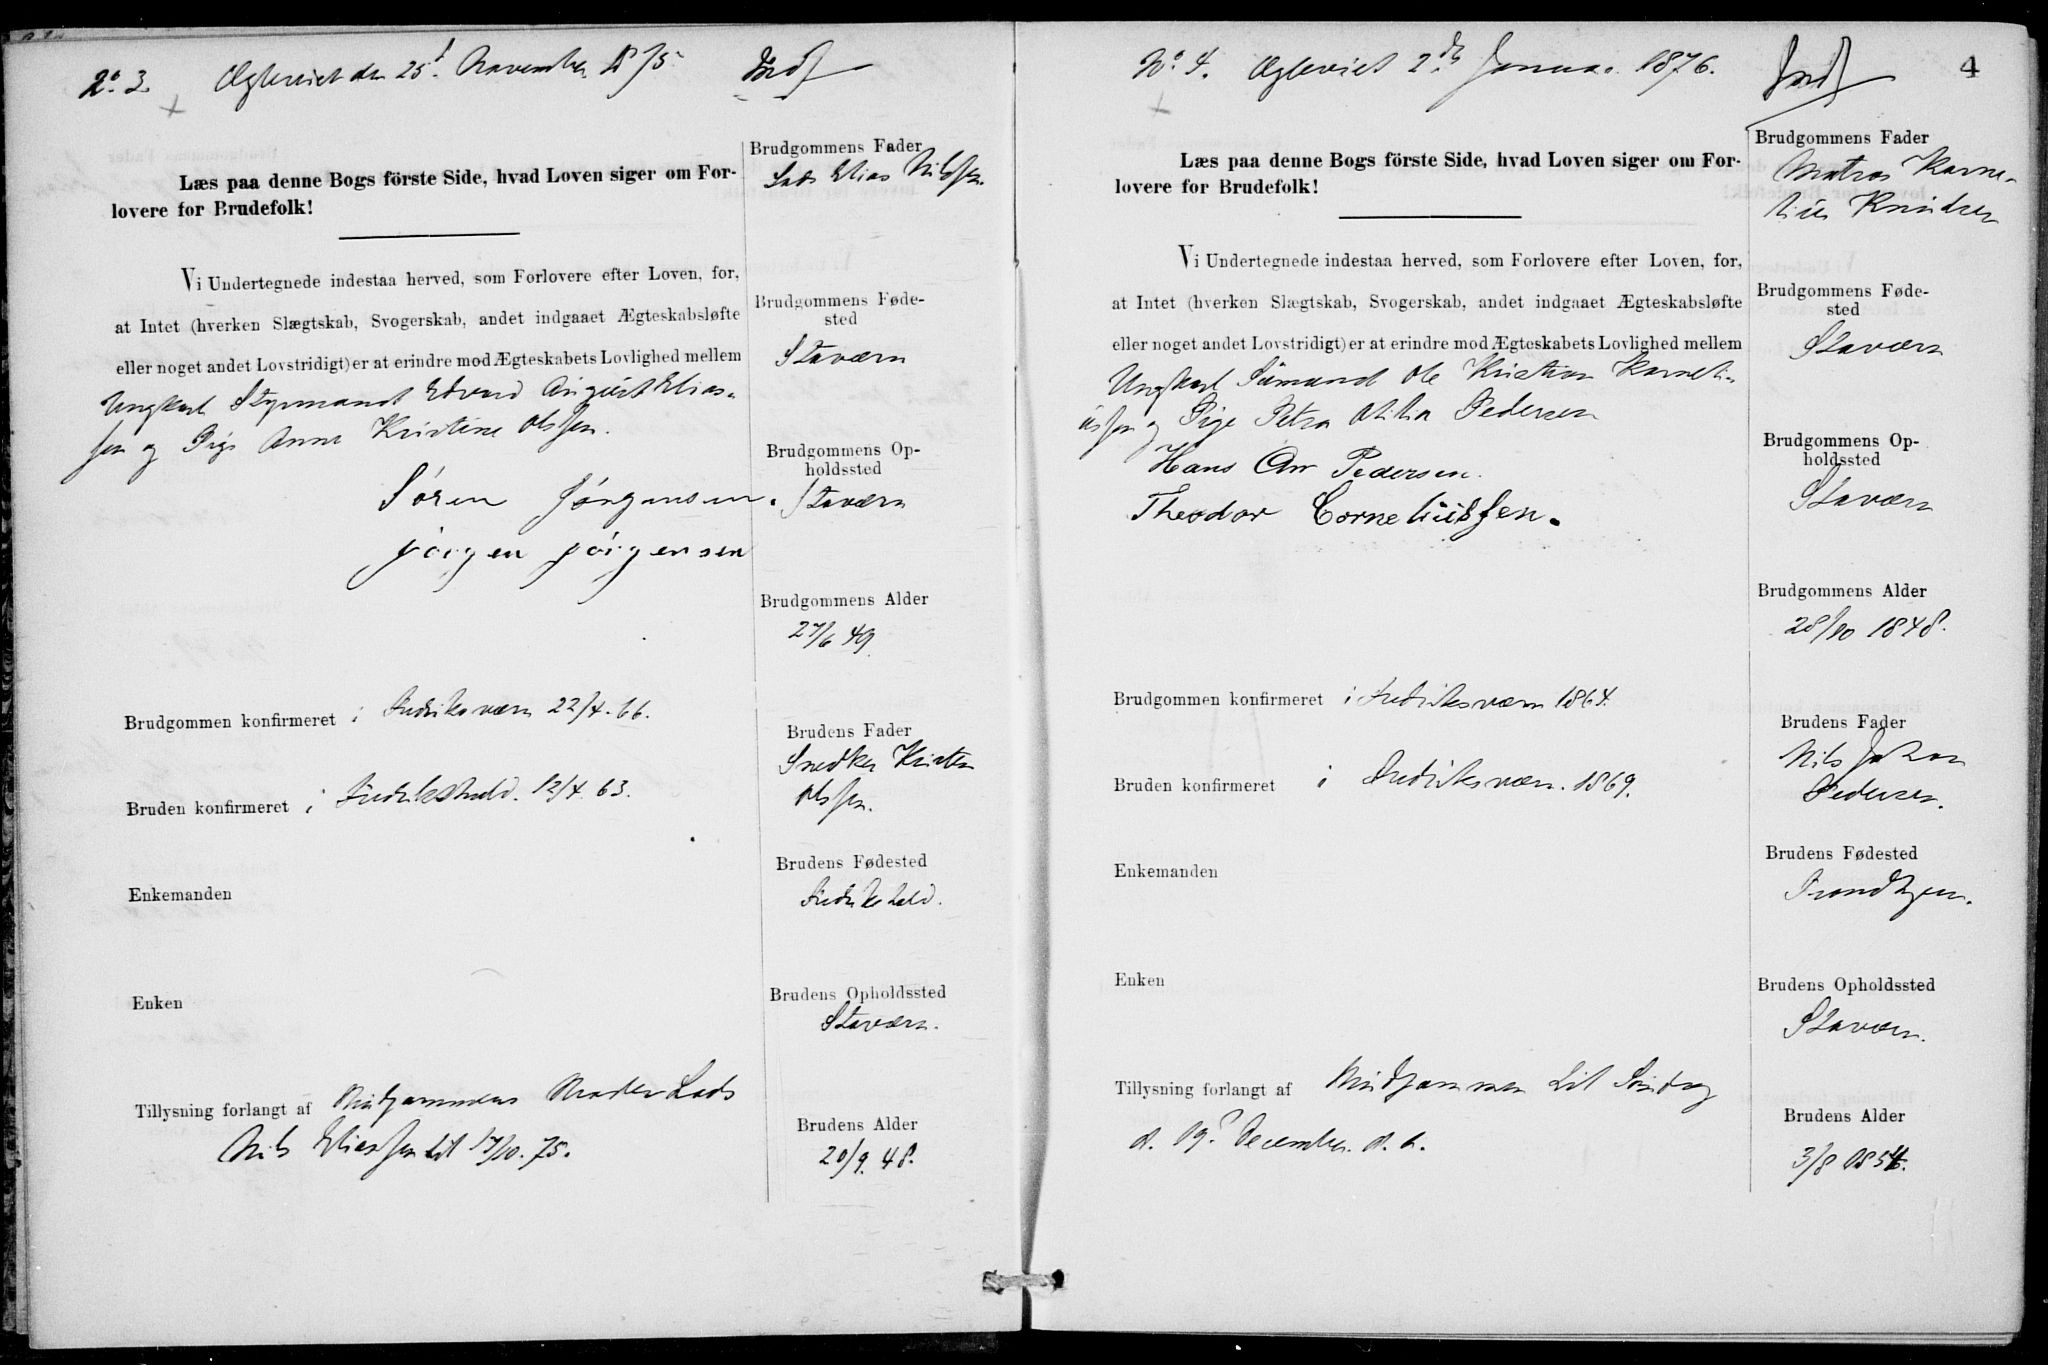 No. 3. Ægteviet den 25d. November 1875. Indf
Brudgommens Fader
Lods Elias Nilssen.
Læs paa denne Bogs förste Side, hvad Loven siger om For-
lovere for Brudefolk!
Vi Undertegnede indestaa herved, som Forlovere efter Loven, for,
at Intet (hverken Slægtskab, Svogerskab, andet indgaaet Ægteskabsløfte
eller noget andet Lovstridigt) er at erindre mod Ægteskabets Lovlighed mellem
Ungkarl Styrmand Edvard August Elias-
sen og Pige Anne Kristine Olssen.
Søren Jørgensen.
Jörgen Jörgensen
Brudgommens Føde-
sted
Staværn
Brudgommens Op-
holdssted
Staværn
Brudgommens Alder
27/6 49.
Brudgommen konfirmeret i Fredriksværn 22/4. 66.
Brudens Fader
Snedker Kristen
Olssen.
Bruden konfirmeret i Fredrikshald. 12/4. 63.
Brudens Fødested
Fredrikshald.
Enkemanden
Brudens Opholdssted
Staværn.
Enken
Tillysning forlangt af Brudgommens Broder Lods
Nils Eliassen til 17/10. 75.
Brudens Alder
20/9. 48.
No. 4. Ægteviet 2den Januar 1876. Indf
4
Brudgommens Fader
Matros Korne-
lius Knudsen
Læs paa denne Bogs förste Side, hvad Loven siger om For-
lovere for Brudefolk!
Vi Undertegnede indestaa herved, som Forlovere efter Loven, for,
at Intet (hverken Slægtskab, Svogerskab, andet indgaaet Ægteskabsløfte
eller noget andet Lovstridigt) er at erindre mod Ægteskabets Lovlighed mellem
Ungkarl Sømand Ole Kristian Korneli-
ussen og Pige Petra Otilia Pedersen
Hans An Pedersen.
Theodor Corneliussen.
Brudgommens Føde-
sted
Staværn
Brudgommens Op-
holdssted
Staværn
Brudgommens Alder
28/10 1848.
Brudgommen konfirmeret i Fredriksværn 1864.
Brudens Fader
Nils Johan
Pedersen.
Bruden konfirmeret i Fredriksværn. 1869.
Brudens Fødested
Trondhjem.
Enkemanden
Brudens Opholdssted
Staværn.
Enken
Tillysning forlangt af Brudgommen til Søndag
d. 19. December. d. A.
Brudens Alder
3/8 1854.